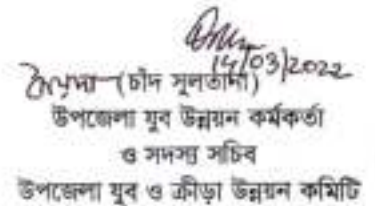 14/03/2022
(চাঁদ সুলতানা)
উপজেলা যুব উন্নয়ন কর্মকর্তা
ও সদস্য সচিব
উপজেলা যুব ও ক্রীড়া উন্নয়ন কমিটি